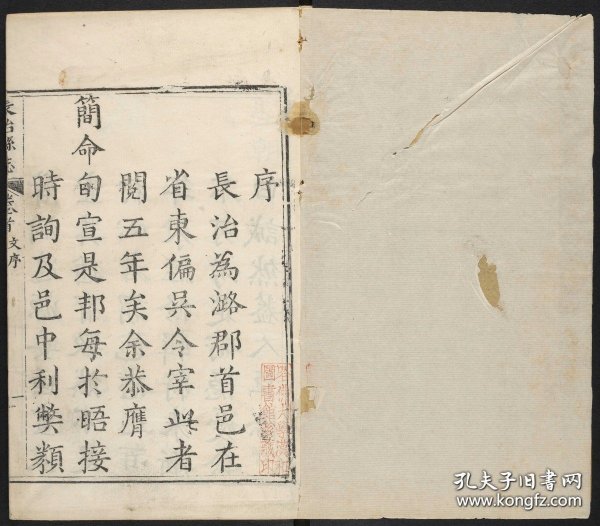 序
長治為潞郡首邑在
省東偏吳令宰此者
閱五年矣余恭膺
簡命甸宣是邦每於晤接
時詢及邑中利弊類
長治縣志
卷首 文序
一
孔夫子旧书网
www.kongfz.com